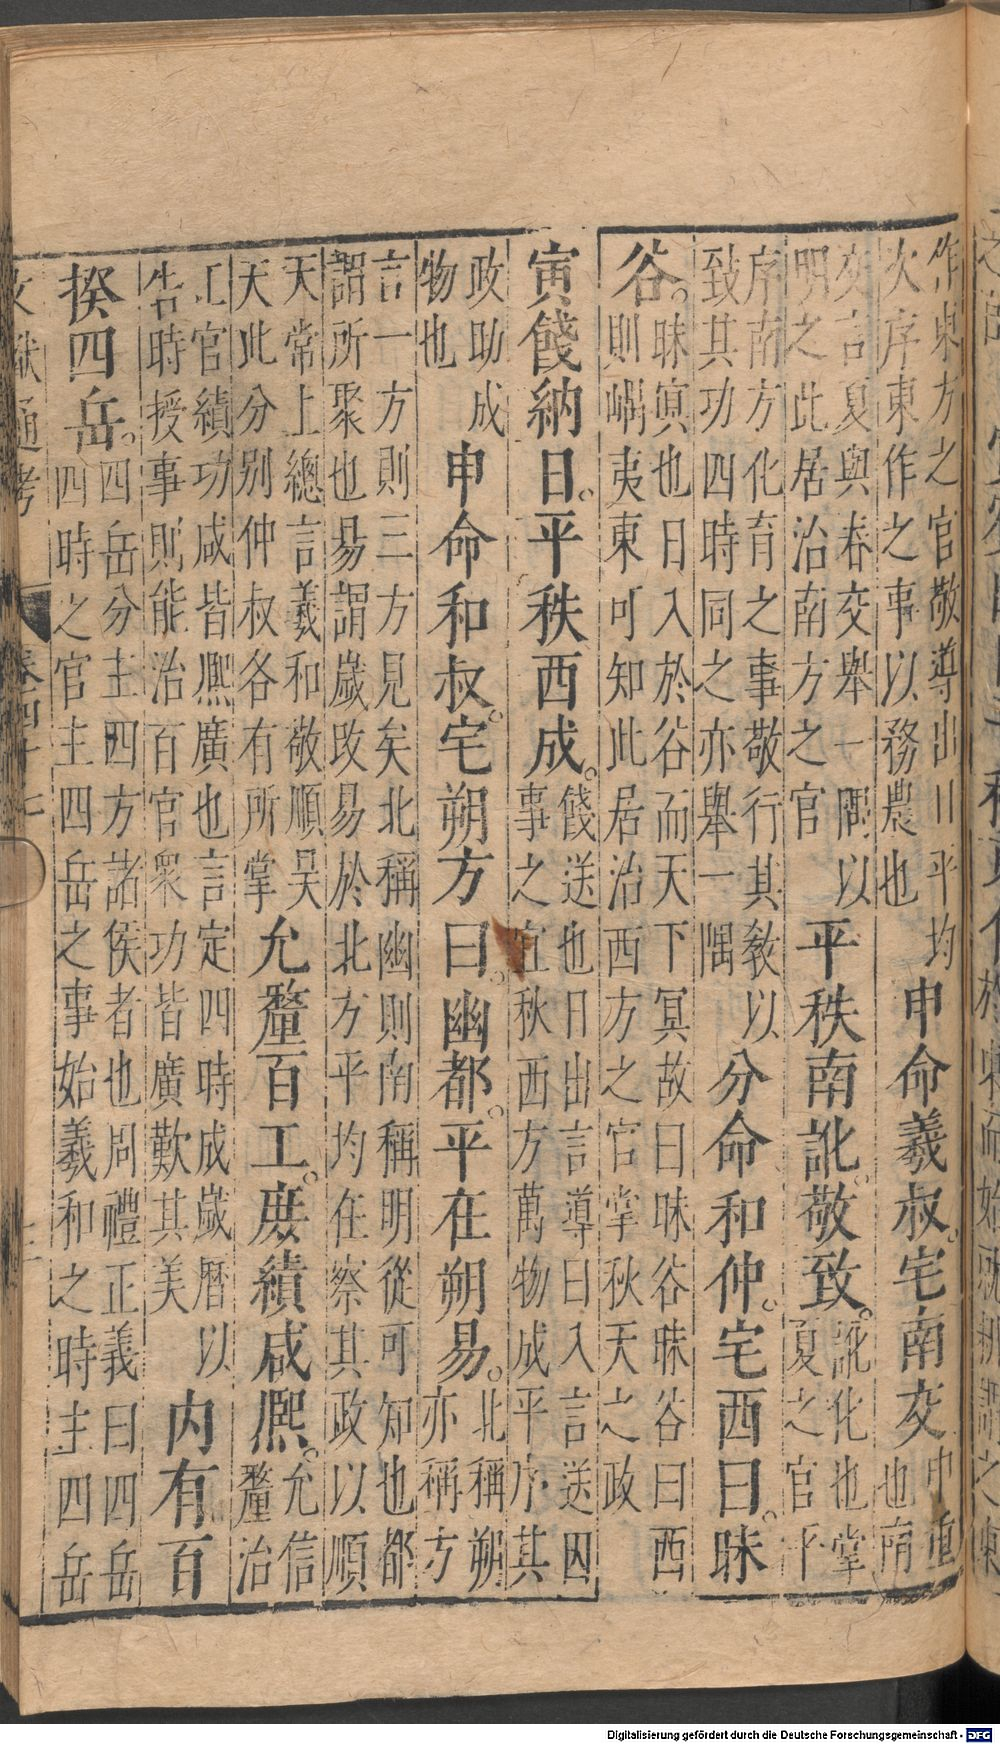 作東方之官敬導出日平均
次序東作之事以務農也
申命羲叔。宅南交
申重
也南
交言夏與春交舉一隅以
明之此居治南方之官
平秩南訛。敬致。
訛化也掌
夏之官平
序南方化育之事敬行其敎以
致其功四時同之亦舉一隅
分命和仲。宅西曰。昧
谷。
昧冥也日入於谷而天下冥故曰昧谷昧谷曰西
則嵎夷東可知此居治西方之官掌秋天之政
寅餞納日。平秩西成。
餞送也日出言導日入言送因
事之宜秋西方萬物成平序其
政助成
物也
申命和叔。宅朔方曰。幽都。平在朔易。
北稱朔
亦稱方
言一方則三方見矣北稱幽則南稱明從可知也都
謂所聚也易謂歲改易於北方平均在察其政以順
天常上總言羲和敬順昊
天此分别仲叔各有所掌
允釐百工。庶績咸熙。
允信
釐治
工官績功咸皆熙廣也言定四時成歲暦以
告時授事則能治百官衆功皆廣歎其美
内有百
揆四岳。
四岳分主四方諸侯者也周禮正義曰四岳
四時之官主四岳之事始羲和之時主四岳
文獻通考 卷四十七
Digitalisierung gefördert durch die Deutsche Forschungsgemeinschaft - DFG